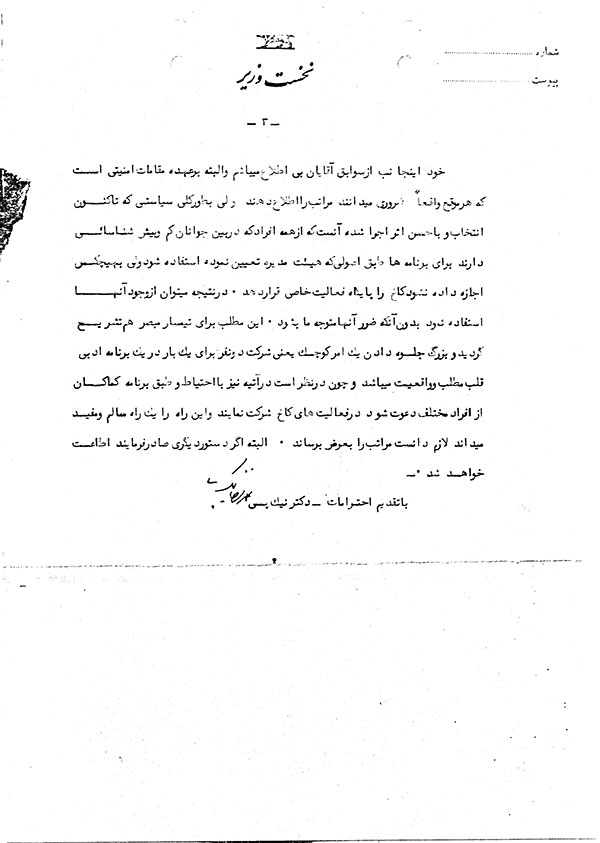 شماره
پیوست
نخست وزیر
ـ ۲ ـ
خود اینجانب از سوابق آقایان بی اطلاع میباشم والبته بعهده مقامات امنیتی است
که هرموقع واقعاً ضروری میدانند مراتب را اطلاع دهند ولی بطورکلی سیاستی که تاکنون
انتخاب و باحسن اثر اجرا شده آنست که از همه افراد که دربین جوانان کم وبیش شناسائی
دارند برای برنامه ها طبق اصولی که هیئت مدیره تعیین نموده استفاده شود ولی بهیچکس
اجازه داده نشود کاخ را پایگاه فعالیت خاصی قرار دهد ۰ درنتیجه میتوان از وجود آنهـــا
استفاده نمود بدون آنکه ضرر آنها متوجه ما بشود ۰ این مطلب برای تیمسار مبصر هم تشریـــح
گردید و بزرگ جلوه دادن یک امر کوچک یعنی شرکت دونفر برای یک بار در یک برنامه ادبی
قلب مطلب و واقعیت میباشد و چون درنظر است درآتیه نیز با احتیاط و طبق برنامه کماکــان
از افراد مختلف دعوت شود درفعالیت های کاخ شرکت نمایند واین راه را یک راه سالم ومفیــد
میداند لازم دانست مراتب را بعرض برساند ۰ البته اگر دستور دیگری صادر فرمایند اطاعــت
خواهــد شد ۰ـ
با تقدیم احترامات ـ دکتر نیک پسی